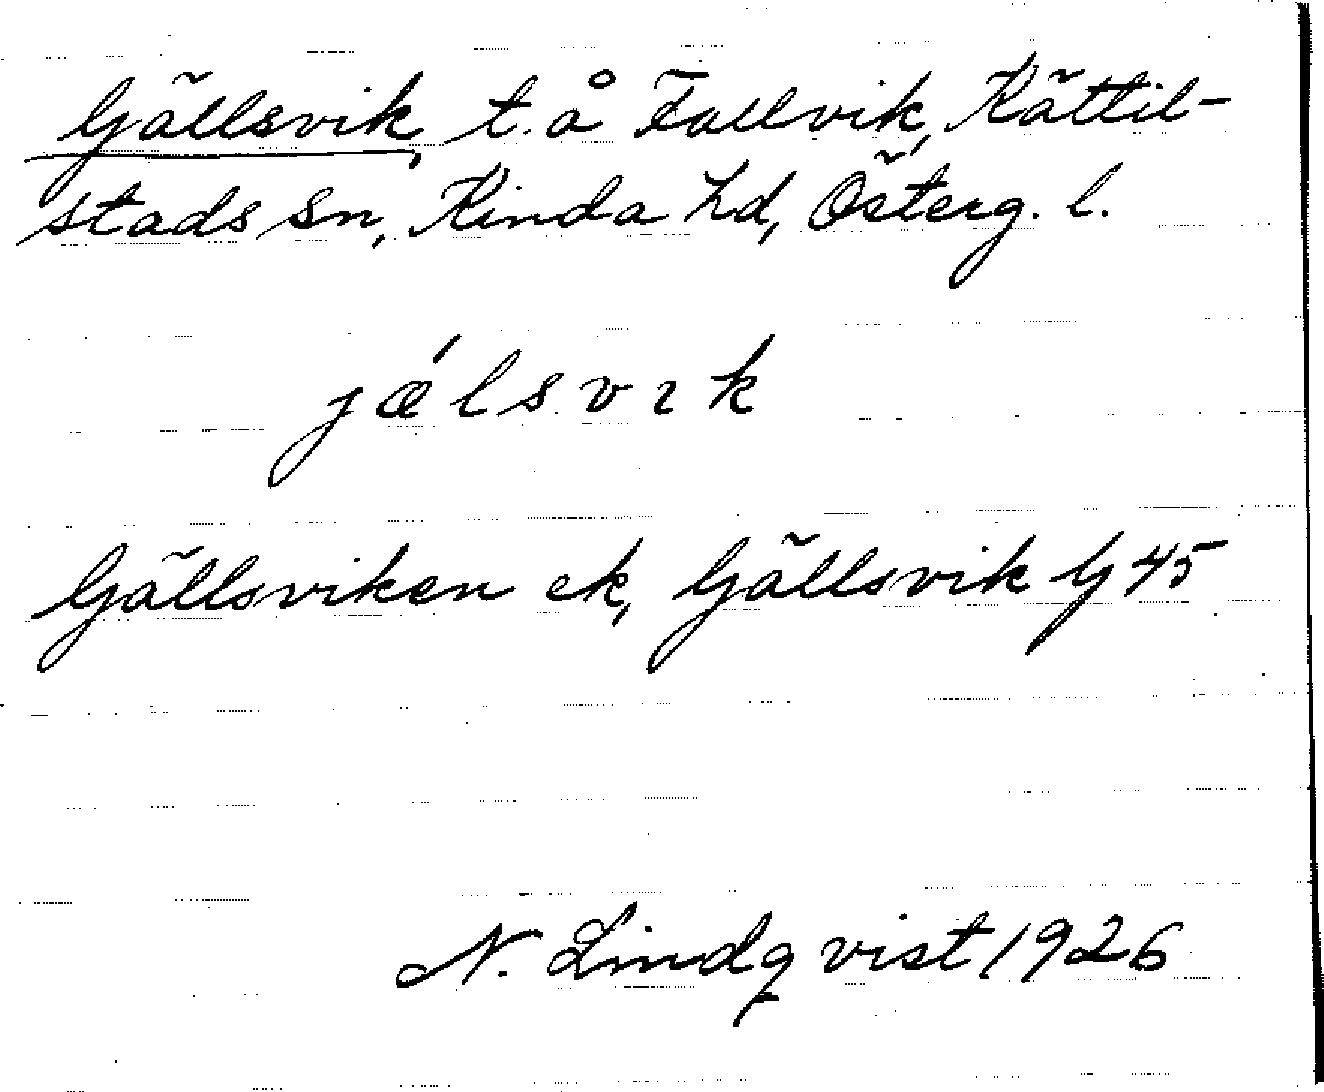 Gällsvik, t. å Fallvik, Kättil-
stads sn, Kinda hd, Österg. l.
jǽlsvɩk
Gällsviken ek, Gällsvik G 45
N. Lindqvist 1926